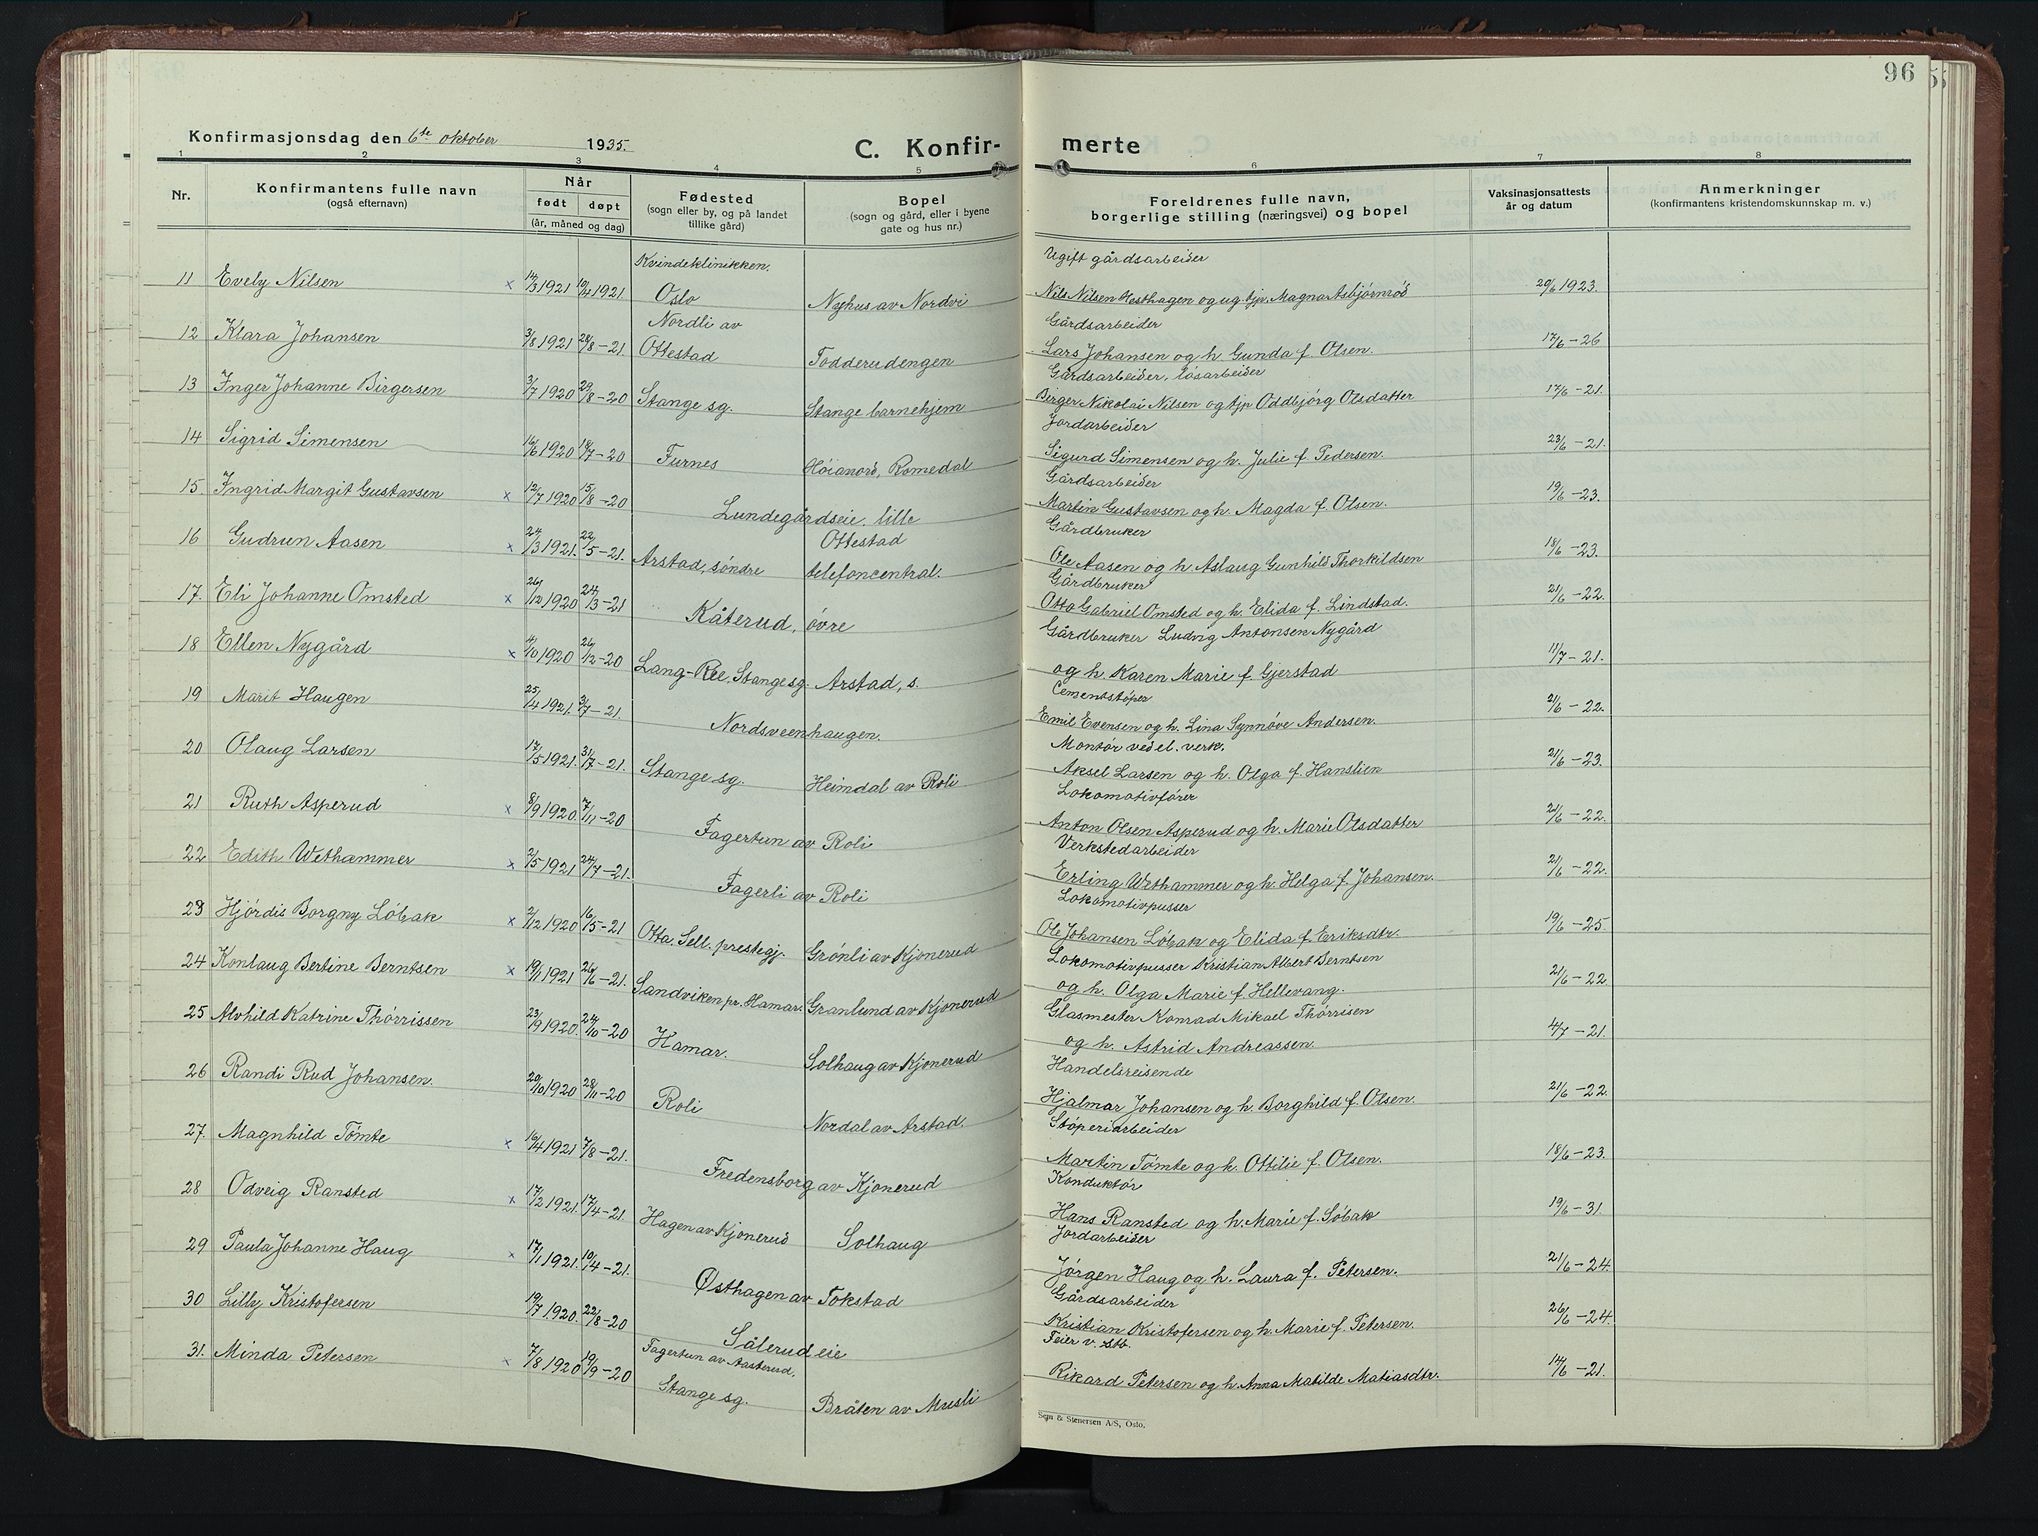 96
Konfirmasjonsdag den 6te oktober 1935.
C. Konfir-
merte
1 2 3 4 5 6 7 8
Nr.
Konfirmantens fulle navn
(også efternavn)
Når
født døpt
(år, måned og dag)
Fødested
(sogn eller by, og på landet
tillike gård)
Bopel
(sogn og gård, eller i byene
gate og hus nr.)
Foreldrenes fulle navn,
borgerlige stilling (næringsvei) og bopel
Vaksinasjonsattests
år og datum
Anmerkninger
(konfirmantens kristendomskunnskap m. v.)
Kvindeklinikken. Ugift gårdsarbeider
11 Evely Nilsen x 14/3 1921 10/4 1921. Oslo Nyhus av Nordvi Nils Nilsen Hesthagen og ug. tjp. Magna Asbjørnrød 20/6 1923.
Nordli av Gårdsarbeider
12 Klara Johansen 3/8 1921 28/8-21. Ottestad Todderudengen Lars Johansen og h. Gunda f. Olsen. 17/6-26
Gårdsarbeider, løsarbeider
13 Inger Johanne Birgersen 3/7 1920 29/8-20 Stange sg. Stange barnehjem Birger Nikolai Nilsen og tjp Oddbjørg Olsdatter 17/6-21.
Jordarbeider
14 Sigrid Simensen 16/6 1920 18/7-20 Furnes Høianord, Romedal Sigurd Simensen og h. Julie f. Pedersen. 23/6-21.
Gårdsarbeider
15 Ingrid Margit Gustavsen x 12/7 1920 15/8-20 Lundegårdseie, lille Martin Gustavsen og h. Magda f. Olsen. 19/6-23.
Ottestad Gårdbruker
16 Gudrun Aasen x 24/3 1921. 22/5-21. Arstad, søndre telefoncentral. Ole Aasen og h. Aslaug Gunhild Thorkildsen 18/6-23.
Gårdbruker
17. Eli Johanne Omsted x 26/12 1920 24/3-21 Kåterud, øvre Otto Gabriel Omsted og h. Elida f. Lindstad. 21/6-22.
Gårdbruker Ludvig Antonsen Nygård
18 Ellen Nygård x 4/10 1920 26/12-20 Lang-Ree, Stange sg. Arstad, s. og h. Karen Marie f. Gjerstad 11/7-21.
Cementstøper
19 Marit Haugen 25/4 1921. 3/7-21. Nordsveenhaugen. Emil Evensen og h. Lina Synnøve Andersen. 21/6-22.
Montør ved el. verk.
20 Olaug Larsen 17/5 1921. 31/7-21. Stange sg. Heimdal av Roli Aksel Larsen og h. Olga f. Hanslien 21/6-23.
Lokomotivfører
21 Ruth Asperud x 8/9 1920. 7/11-20 Fagertun av Roli Anton Olsen Asperud og h. Marie Olsdatter 21/6-22.
Verkstedarbeider
22 Edith Wethammer x 2/5 1921 24/7-21. Fagerli av Roli Erling Wethammer og h. Helga f. Johansen. 21/6-22.
Lokomotivpusser
23 Hjørdis Borgny Løbak x 2/12 1920 16/5-21 Otta, Sell. prestegj. Grønli av Kjonerud Ole Johansen Løbak og Elida f. Eriksdtr. 19/6-25.
Lokomotivpusser Kristian Albert Berntsen
24 Konlaug Bertine Berntsen x 19/1 1921 26/6-21. Sandviken pr. Hamar Granlund av Kjonerud og h. Olga Marie f. Hellevang. 21/6-22
Glasmester Konrad Mikael Thørrisen
25 Alvhild Katrine Thørrissen 23/9 1920. 24/10-20 Hamar. Solhaug av Kjonerud og h. Astrid Andreassen 4/7-21.
Handelsreisende
26 Randi Rud Johansen. 20/10 1920 28/11-20 Roli Nordal av Arstad. Hjalmar Johansen og h. Borghild f. Olsen. 21/6-22.
Støperiarbeider
27. Magnhild Tømte x 16/4 1921 7/8-21. Fredensborg av Kjonerud Martin Tømte og h. Ottilie f. Olsen. 18/6-23.
Konduktør
28 Odveig Ransted x 17/2 1921. 17/4-21. Hagen av Kjonerud Solhaug Hans Ransted og h. Marie f. Søbak 19/6-31.
Jordarbeider
29 Paula Johanne Haug x 17/1 1921. 10/4-21. Østhagen av Tokstad Jørgen Haug og h. Laura f. Petersen. 21/6-24.
Gårdsarbeider
30 Lilly Kristofersen 19/7 1920. 22/8-20 Sålerud eie Kristian Kristofersen og h. Marie f. Petersen. 26/6-24.
Fagertun av Aasterud, Feier v. stb.
31. Minda Petersen x 7/8 1920 19/9-20 Stange sg. Bråten av Musli Rikard Petersen og h. Anna Matilde Matiasdtr. 14/6-21.
Sem & Stenersen A/S, Oslo.